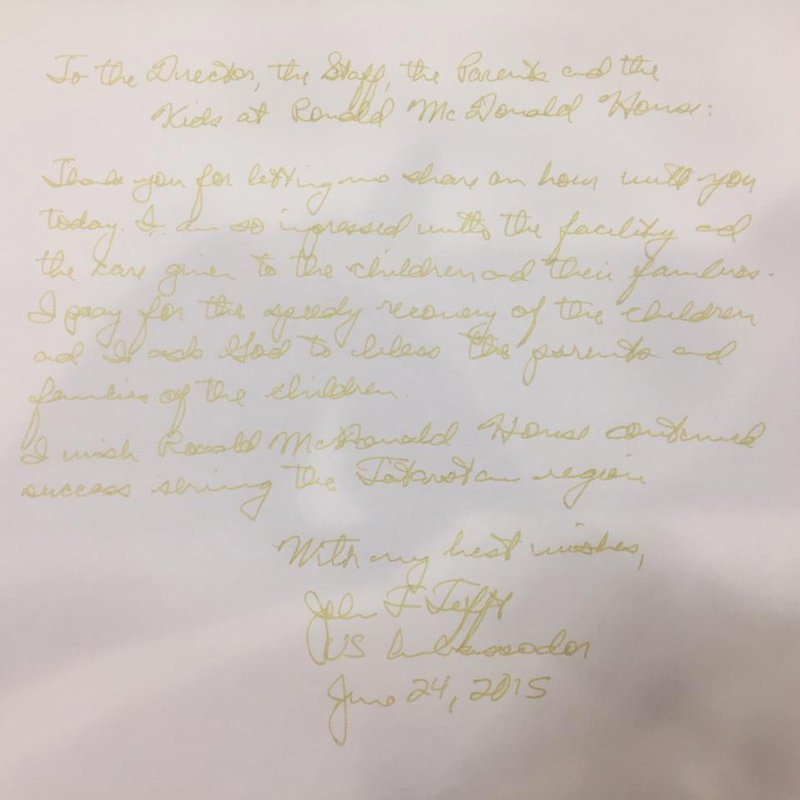 To the Director, the Staff, the Parents and the
Kids at Ronald McDonald House:
Thank you for letting me share an hour with you
today. I am so impressed with the facility and
the care given to the children and their families.
I pray for the speedy recovery of the children
and I ask God to bless the parents and
families of the children.
I wish Ronald McDonald House continued
success serving the Tatarstan region
With my best wishes,
John F Tefft
US Ambassador
June 24, 2015